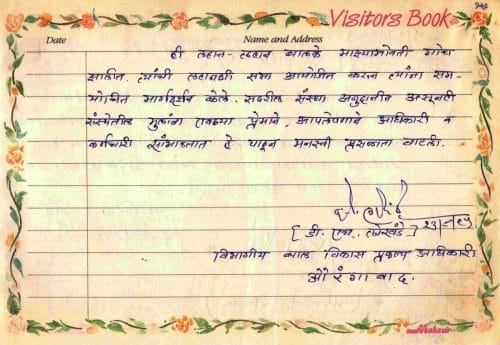 Visitors Book
Date Name and Address
ही लहान-लहान बालके माझ्याभोवती गोळा
झालीत. त्यांची लहानशी सभा आयोजित करून त्यांना सम-
योचित मार्गदर्शन केले. सदरील संस्था अनुदानीत असूनही
संस्थेतील मुलांना एवढ्या प्रेमाने, आपलेपणाने अधिकारी व
कर्मचारी सांभाळतात हे पाहून मनस्वी प्रसन्नता वाटली.
[ डी. एच. लोखंडे ]
विभागीय बाल विकास प्रकल्प अधिकारी
औरंगाबाद.